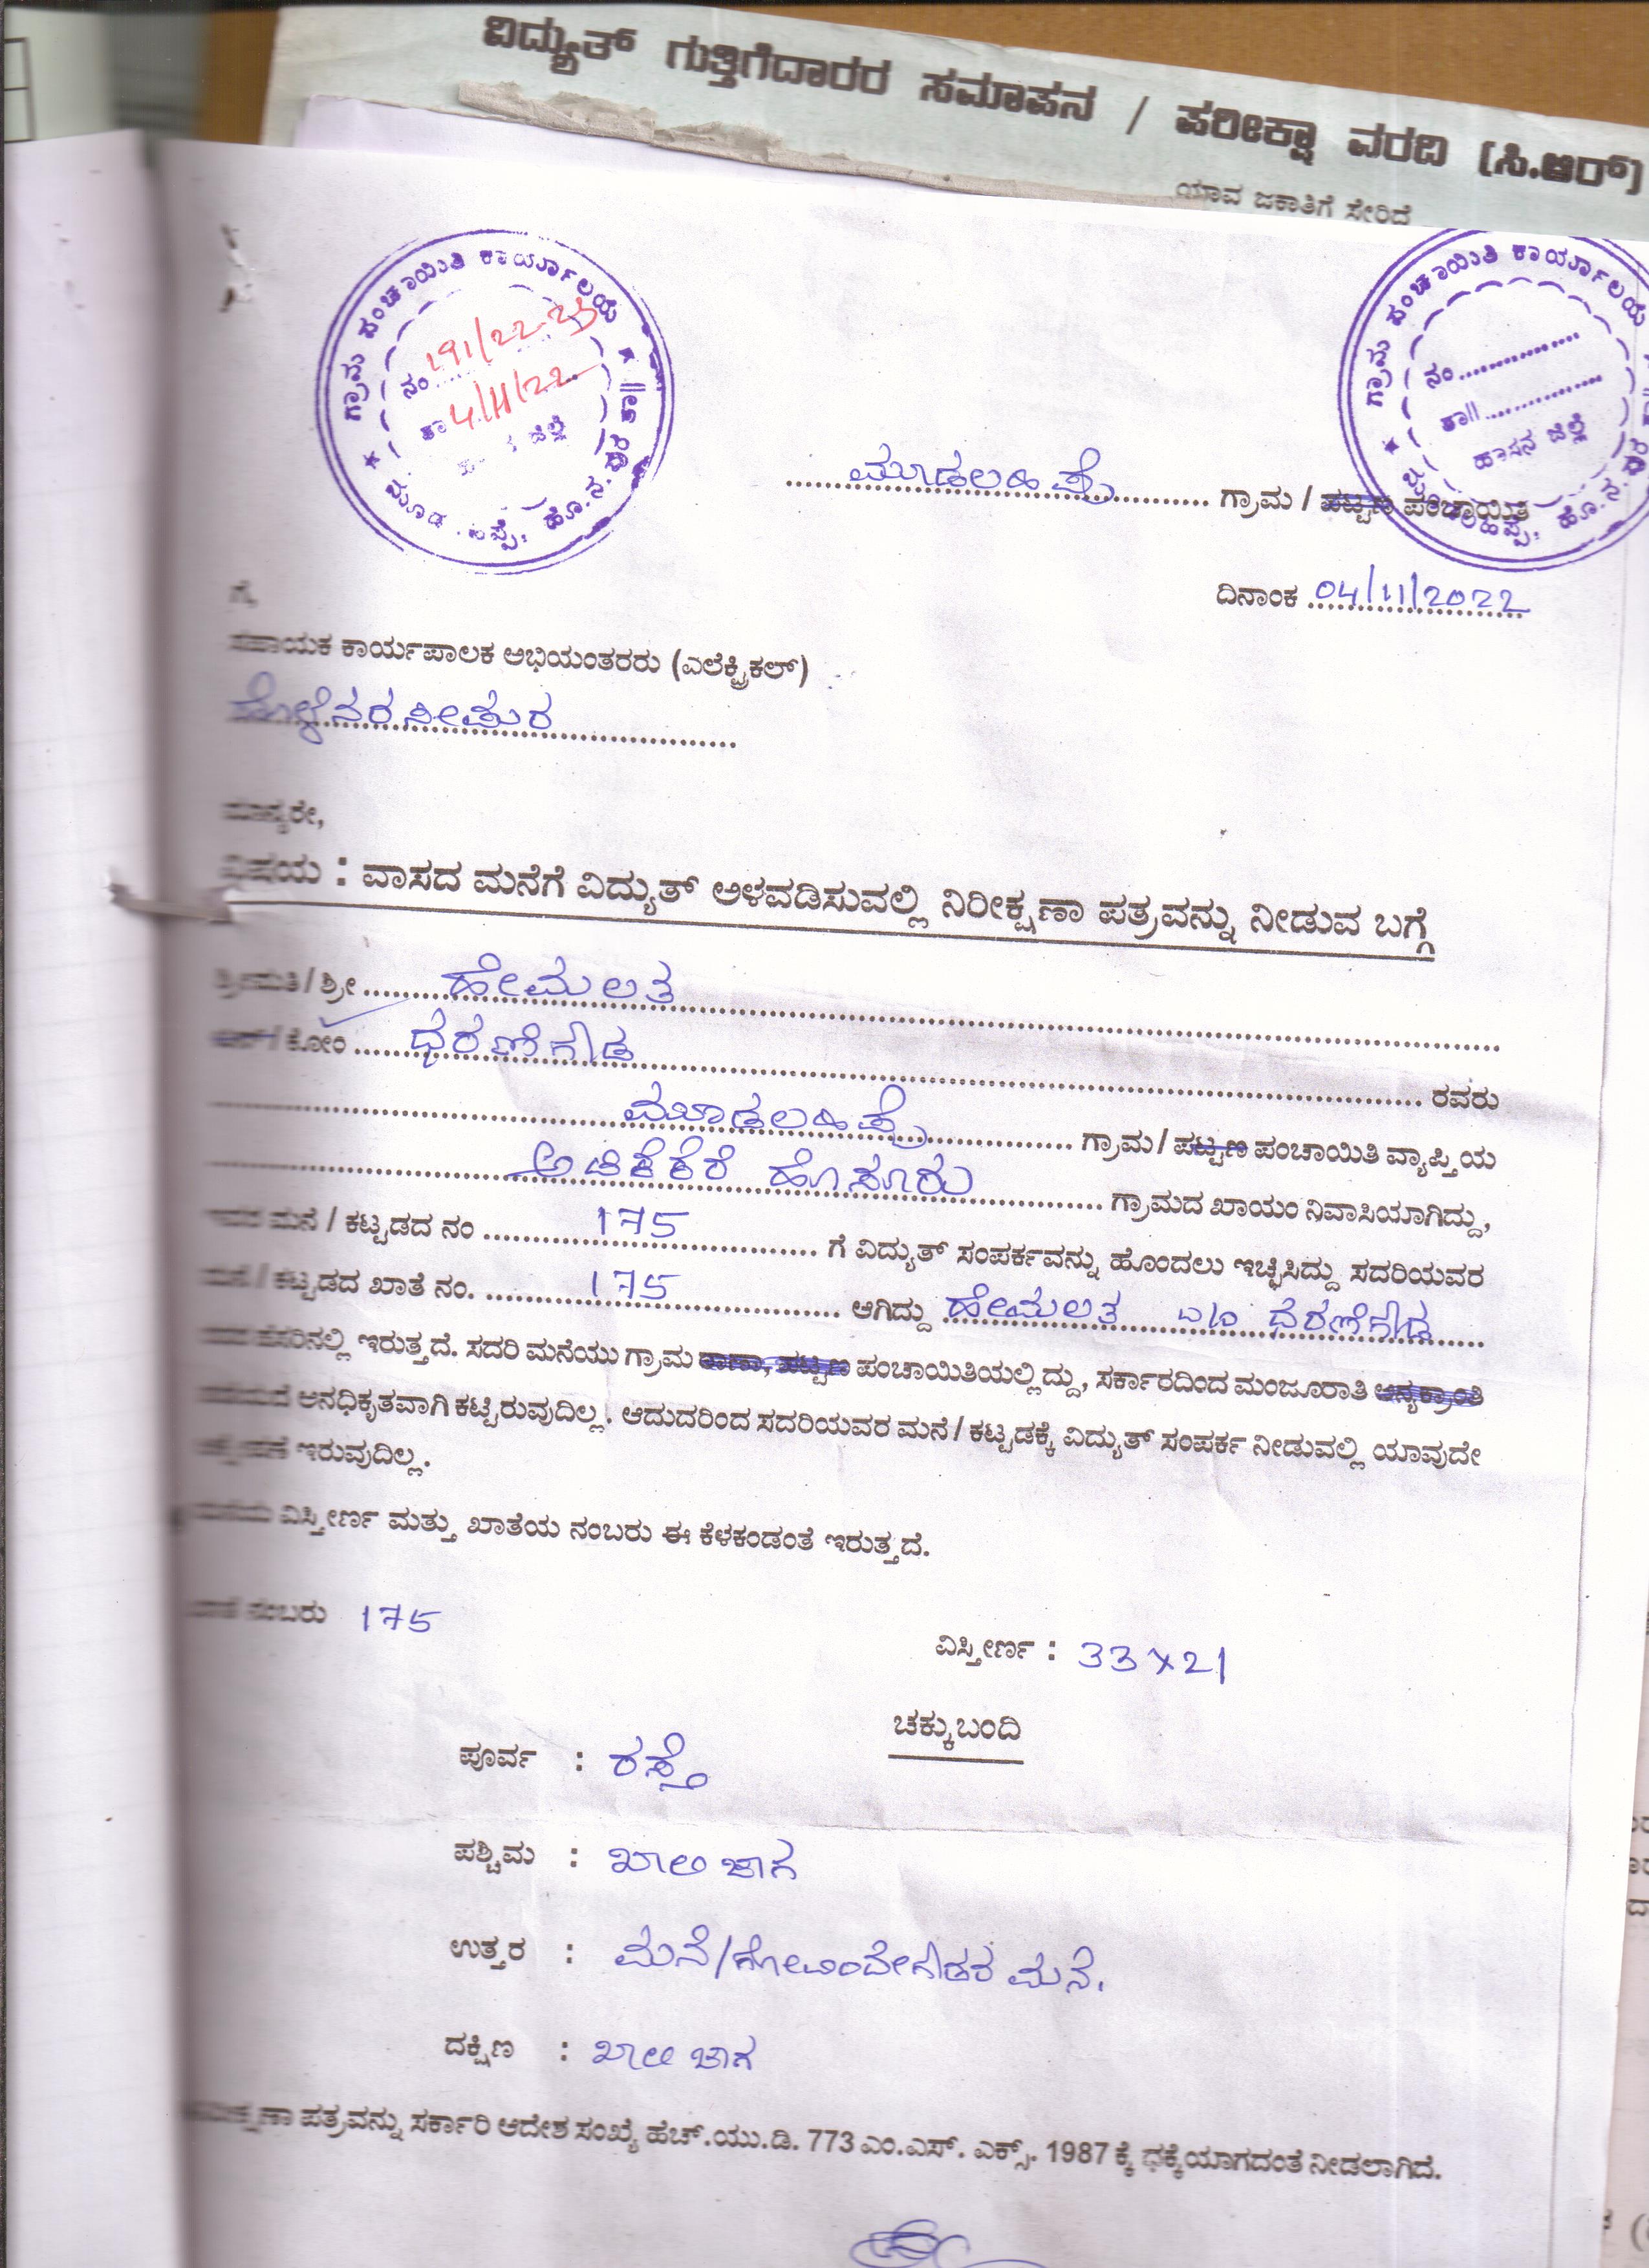 ವಿದ್ಯುತ್ ಗುತ್ತಿಗೆದಾರರ ಸಮಾಪನ / ಪರೀಕ್ಷಾ ವರದಿ (ಸಿ.ಆರ್)
ಯಾವ ಜಕಾತಿಗೆ ಸೇರಿದೆ
ಗ್ರಾಮ ಪಂಚಾಯಿತಿ ಕಾರ್ಯಾಲಯ
ನಂ 191/22-23
ತಾ 4/11/22
ಜಿಲ್ಲೆ
ಗ್ರಾಮ ಪಂಚಾಯಿತಿ ಕಾರ್ಯಾಲಯ
ನಂ
ತಾ||
ಹಾಸನ ಜಿಲ್ಲೆ
ಮೂಡಲಹಿಪ್ಪೆ ಗ್ರಾಮ / ಪಟ್ಟಣ ಪಂಚಾಯಿತಿ
ದಿನಾಂಕ 04/11/2022
ಗೆ,
ಸಹಾಯಕ ಕಾರ್ಯಪಾಲಕ ಅಭಿಯಂತರರು (ಎಲೆಕ್ಟ್ರಿಕಲ್)
ಹೊಳೆನರಸೀಪುರ
ಮಾನ್ಯರೇ,
ವಿಷಯ : ವಾಸದ ಮನೆಗೆ ವಿದ್ಯುತ್ ಅಳವಡಿಸುವಲ್ಲಿ ನಿರೀಕ್ಷಣಾ ಪತ್ರವನ್ನು ನೀಡುವ ಬಗ್ಗೆ
ಶ್ರೀಮತಿ / ಶ್ರೀ ಹೇಮಲತ
ಕೋಂ ಧರಣಿಗೌಡ ರವರು
ಮೂಡಲಹಿಪ್ಪೆ ಗ್ರಾಮ / ಪಟ್ಟಣ ಪಂಚಾಯಿತಿ ವ್ಯಾಪ್ತಿಯ
ಹೊಸೂರು ಗ್ರಾಮದ ಖಾಯಂ ನಿವಾಸಿಯಾಗಿದ್ದು,
ಮನೆ / ಕಟ್ಟಡದ ನಂ 175 ಗೆ ವಿದ್ಯುತ್ ಸಂಪರ್ಕವನ್ನು ಹೊಂದಲು ಇಚ್ಛಿಸಿದ್ದು ಸದರಿಯವರ
ಮನೆ / ಕಟ್ಟಡದ ಖಾತೆ ನಂ. 175 ಆಗಿದ್ದು ಹೇಮಲತ ಧರಣಿಗೌಡ
ಹೆಸರಿನಲ್ಲಿ ಇರುತ್ತದೆ. ಸದರಿ ಮನೆಯು ಗ್ರಾಮ ಠಾಣಾ, ಪಟ್ಟಣ ಪಂಚಾಯಿತಿಯಲ್ಲಿದ್ದು, ಸರ್ಕಾರದಿಂದ ಮಂಜೂರಾತಿ ಅನ್ಯಕ್ರಾಂತಿ
ಅನಧಿಕೃತವಾಗಿ ಕಟ್ಟಿರುವುದಿಲ್ಲ. ಆದುದರಿಂದ ಸದರಿಯವರ ಮನೆ / ಕಟ್ಟಡಕ್ಕೆ ವಿದ್ಯುತ್ ಸಂಪರ್ಕ ನೀಡುವಲ್ಲಿ ಯಾವುದೇ
ಇರುವುದಿಲ್ಲ.
ವಿಸ್ತೀರ್ಣ ಮತ್ತು ಖಾತೆಯ ನಂಬರು ಈ ಕೆಳಕಂಡಂತೆ ಇರುತ್ತದೆ.
ನಂಬರು 175
ವಿಸ್ತೀರ್ಣ : 33 X 21
ಚಕ್ಕುಬಂದಿ
ಪೂರ್ವ : ರಸ್ತೆ
ಪಶ್ಚಿಮ : ಖಾಲಿ ಜಾಗ
ಉತ್ತರ : ಮನೆ/ಗೋವಿಂದೇಗೌಡರ ಮನೆ.
ದಕ್ಷಿಣ : ಖಾಲಿ ಜಾಗ
ಪತ್ರವನ್ನು ಸರ್ಕಾರಿ ಆದೇಶ ಸಂಖ್ಯೆ ಹೆಚ್.ಯು.ಡಿ. 773 ಎಂ.ಎಸ್. ಎಕ್ಸ್. 1987 ಕ್ಕೆ ಧಕ್ಕೆಯಾಗದಂತೆ ನೀಡಲಾಗಿದೆ.